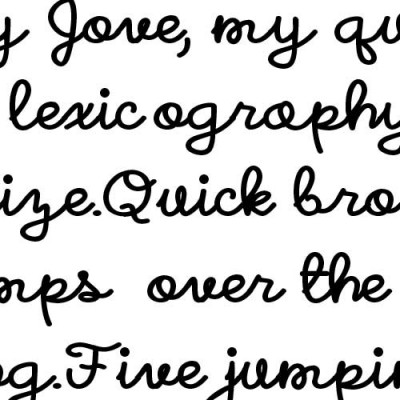 y Jove, my qu
lexic ography
ize.Quick bro
mps over the
og.Five jumpin